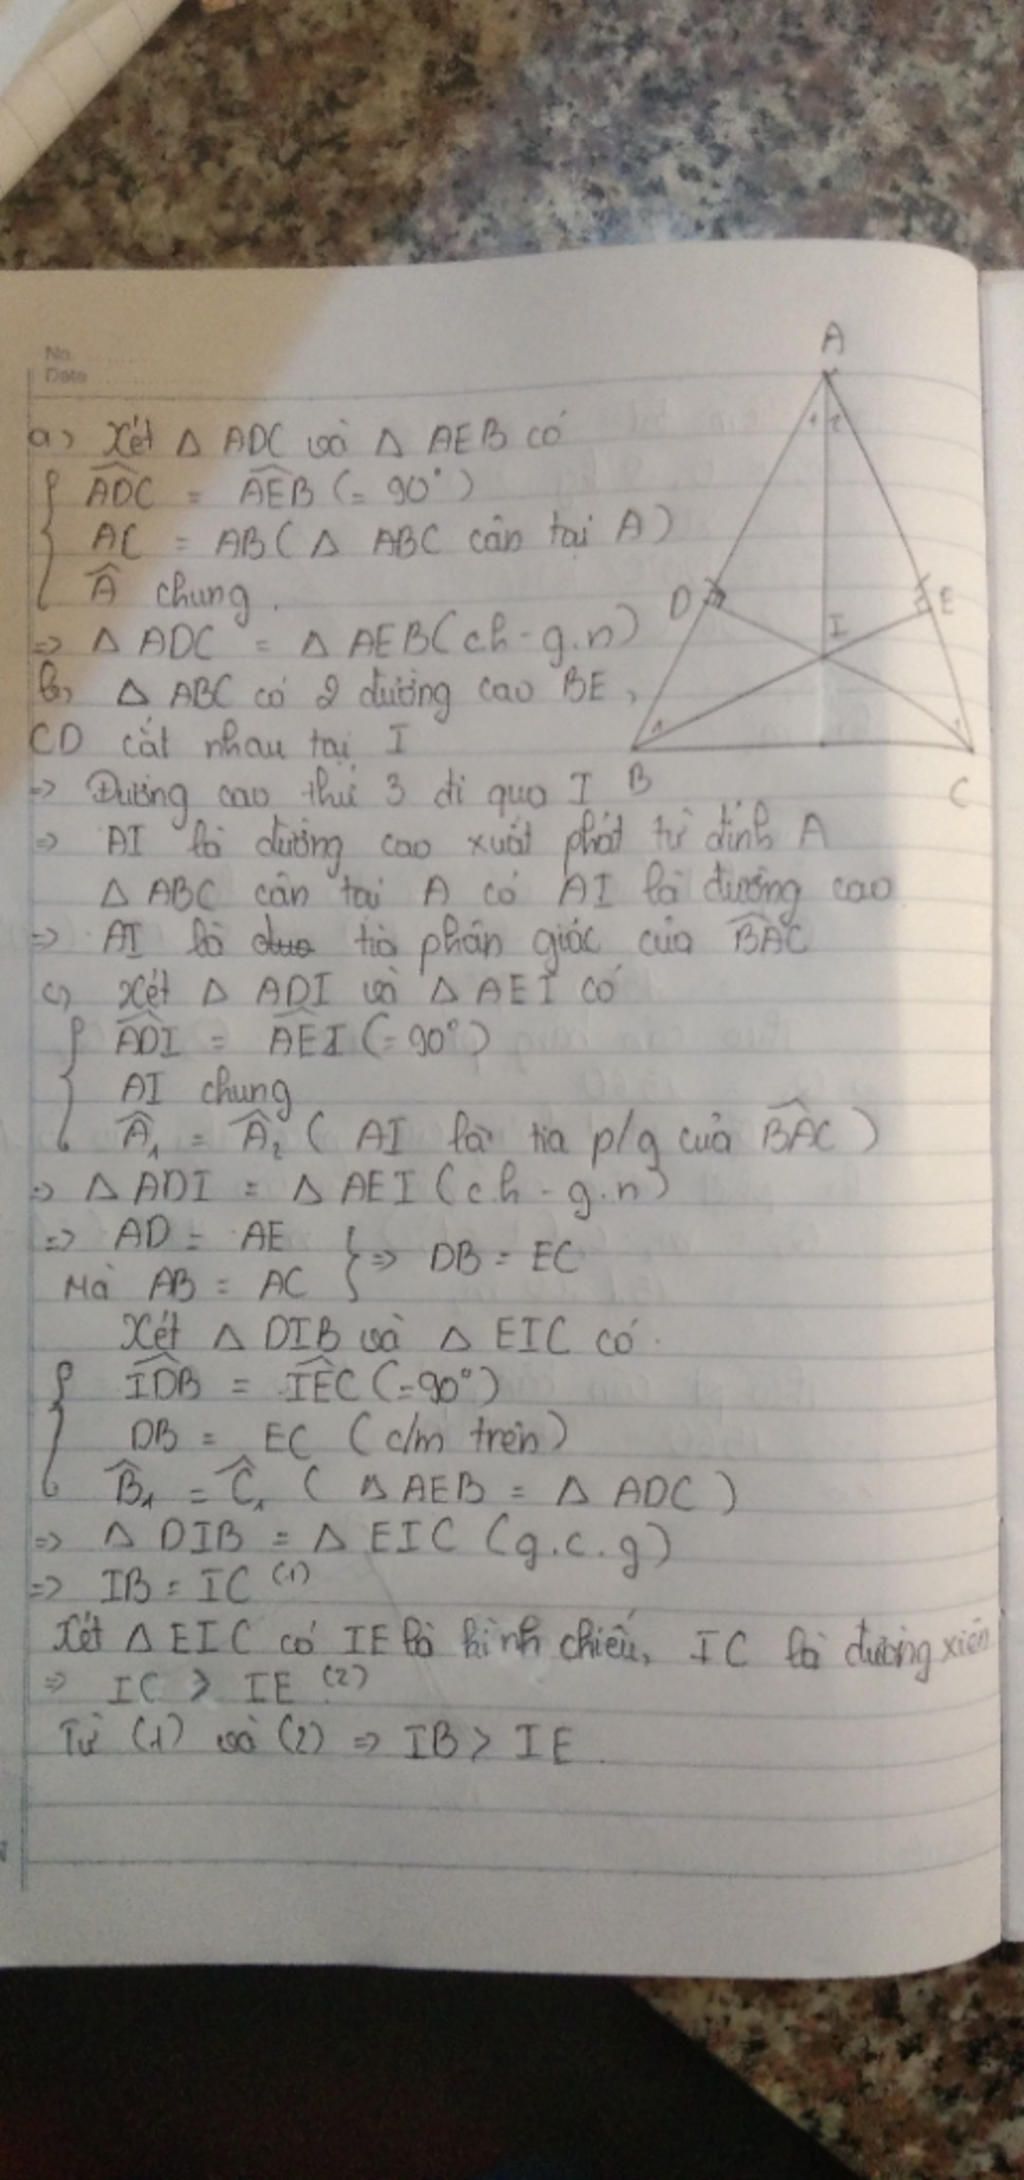 No.
Date
A
1 2
D
E
I
1
1
B
C
a, Xét Δ ADC và Δ AEB có
{ \widehat{ADC} = \widehat{AEB} (= 90°)
AC = AB ( Δ ABC cân tại A)
\widehat{A} chung.
=> Δ ADC = Δ AEB (ch - g.n)
b, Δ ABC có 2 đường cao BE,
CD cắt nhau tại I
=> Đường cao thứ 3 đi qua I
=> AI là đường cao xuất phát từ đỉnh A
Δ ABC cân tại A có AI là đường cao
=> AI là tia phân giác của \widehat{BAC}
c, Xét Δ ADI và Δ AEI có
{ \widehat{ADI} = \widehat{AEI} (= 90°)
AI chung
\widehat{A}₁ = \widehat{A}₂ ( AI là tia p/g của \widehat{BAC} )
=> Δ ADI = Δ AEI (ch - g.n)
=> AD = AE
Mà AB = AC } => DB = EC
Xét Δ DIB và Δ EIC có.
{ \widehat{IDB} = \widehat{IEC} (= 90°)
DB = EC ( c/m trên)
\widehat{B}₁ = \widehat{C}₁ ( Δ AEB = Δ ADC )
=> Δ DIB = Δ EIC (g.c.g)
=> IB = IC (1)
Xét Δ EIC có IE là hình chiếu, IC là đường xiên
=> IC > IE (2)
Từ (1) và (2) => IB > IE.